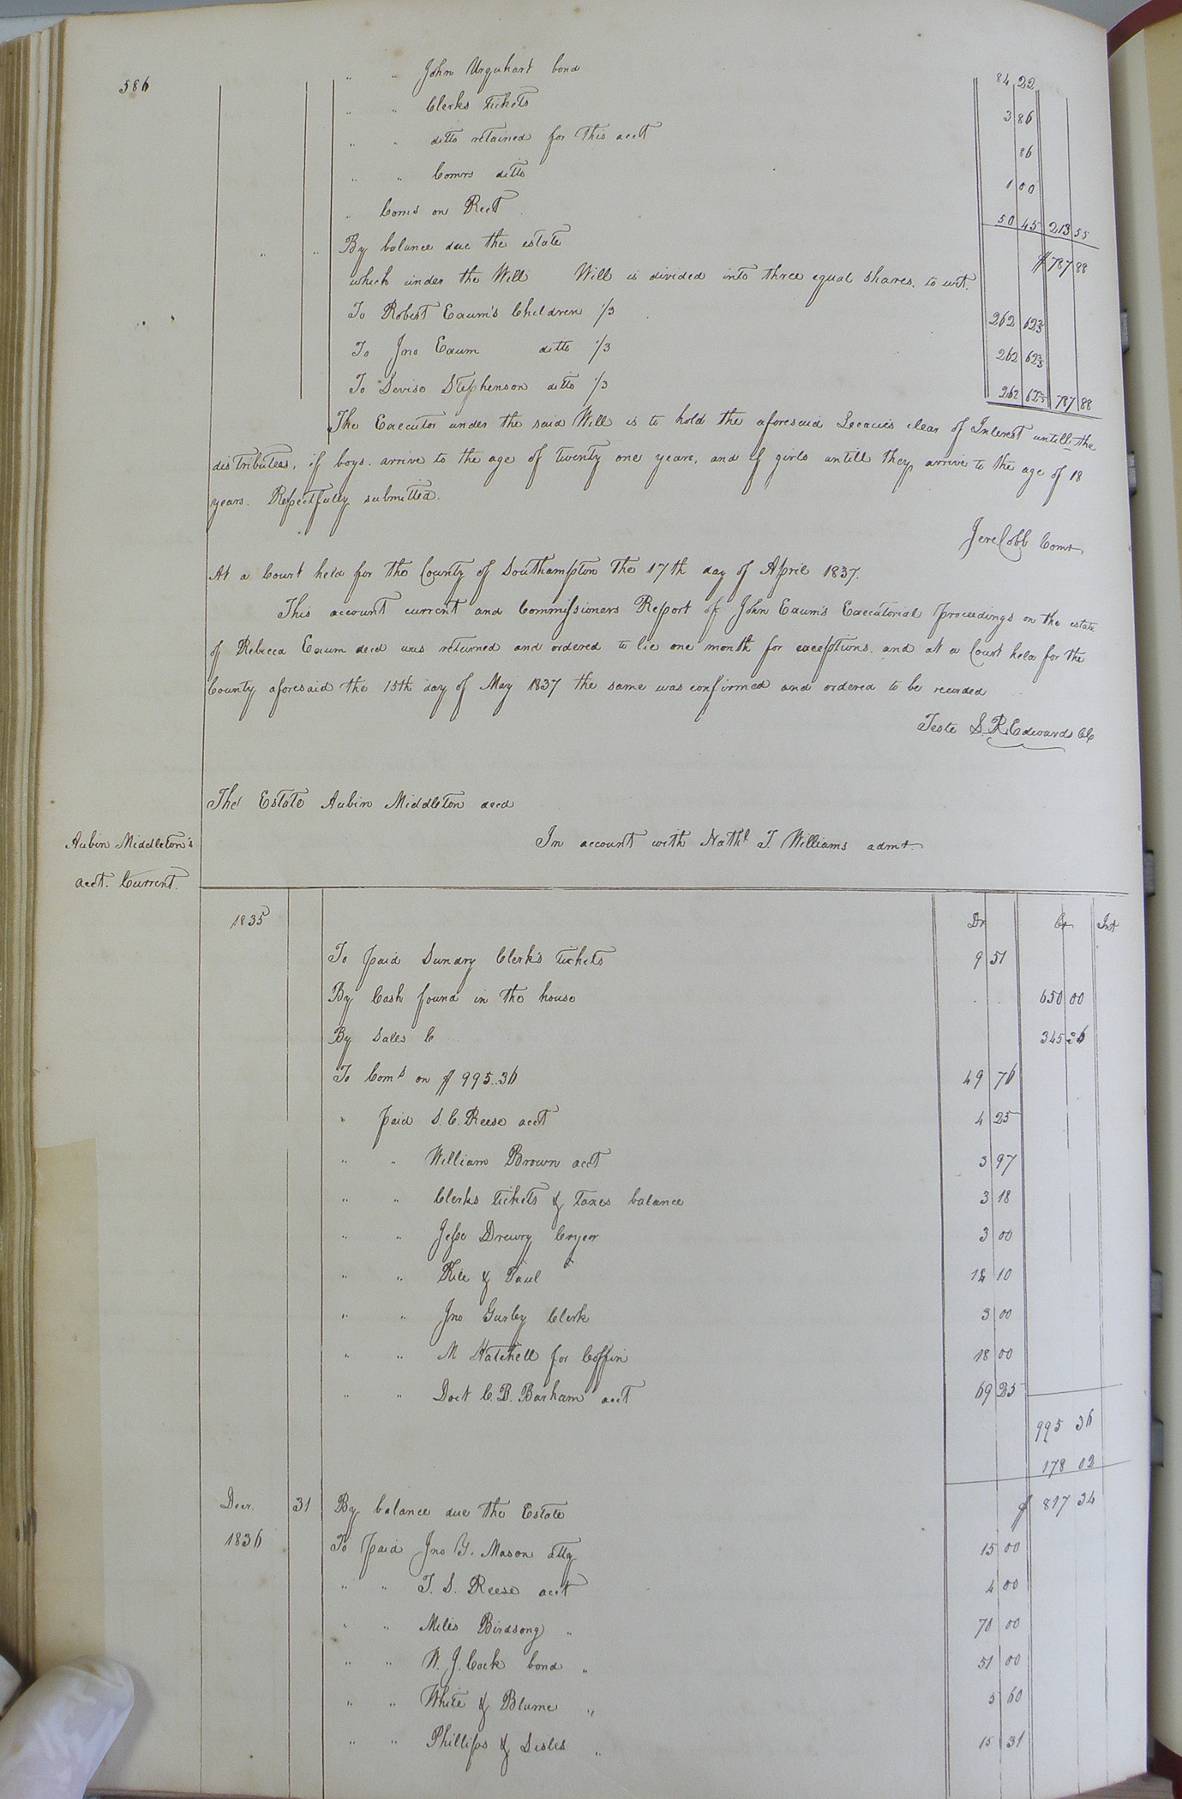 586
" " John Urquhart bond 84 22
" " Clerks Tickets 3 86
" " ditto retained for this acct 86
" " Comrs ditto 1 00
" Coms on Rect 50 45 213 55
" " By balance due the estate $787 88
which under the Will Will is divided into three equal shares, to wit.
To Robert Exum's Children 1/3 262 62⅔
To Jno Exum ditto 1/3 262 62⅔
To Stephenson ditto 1/3 262 62⅔ 787 88
The Executor under the said Will is to hold the aforesaid Legacies clear of Interest untill the
distributees, if boys. arrive to the age of twenty one years, and if girls untill they arrive to the age of 18
years. Respectfully submitted.
Jere Cobb Comr
At a Court held for the County of Southampton the 17th day of April 1837.
This account current and Commissioners Report of John Exum's Executorial proceedings on the estate
of Rebecca Exum decd was returned and ordered to lie one month for exceptions. and at a Court held for the
County aforesaid the 15th day of May 1837 the same was confirmed and ordered to be recorded
Teste S. R. Edwards CC
The Estate Aubin Middleton decd
Aubin Middleton's
In account with Nathl T. Williams admr
acct. Current.
1835 Dr Cr Int
To paid Sundry Clerk's tickets 9 51
By Cash found in the house 650 00
By Sales C 345 36
To Coms on $995.36 49 76
" paid S. C. Reese acct 4 25
" " William Brown acct 3 97
" " Clerks Tickets & Taxes balance 3 18
" " Jesse Drewry Cryer 3 00
" " & Paul 14 10
" " Jno Gurley Clerk 3 00
" " M Hatchell for Coffin 18 00
" " Doct C. B. Barham acct 69 25
995 36
178 02
Decr. 31 By balance due the Estate $ 817 34
1836 To paid Jno Y. Mason atty 15 00
" " T. S. Reese acct 4 00
" " Miles Birdsong " 70 00
" " N. J. Cock bond " 51 00
" " White & Blume " 5 60
" " Phillips & " 15 31